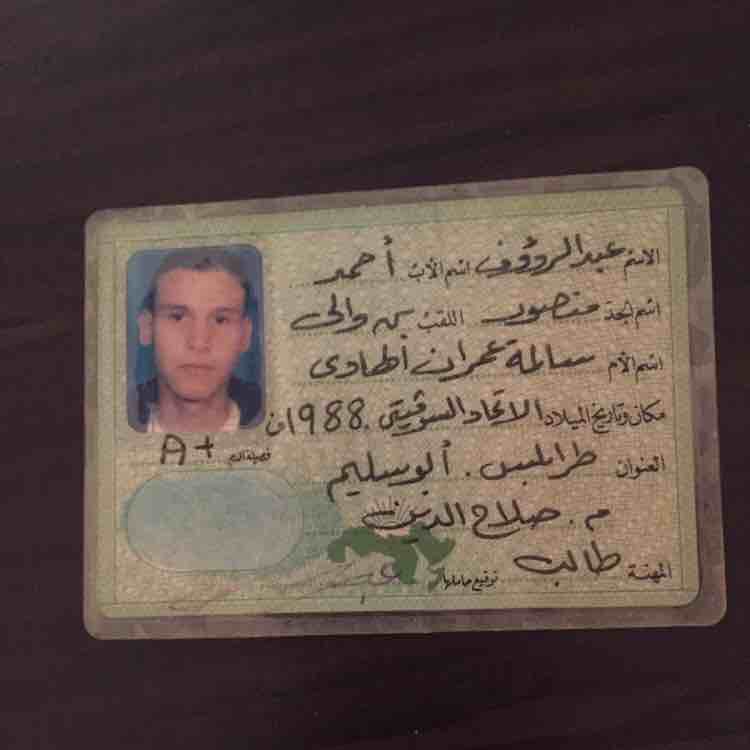 الاسم عبدالرؤوف اسم الأب أحمد
اسم الجد منصور اللقب بن والي
اسم الأم سالمة عمران الهادي
مكان وتاريخ الميلاد الاتحاد السوڤيتي 1988ف
A+ فصيلة الدم
العنوان طرابلس. أبوسليم
م. صلاح الدين
المهنة طالب
توقيع حاملها